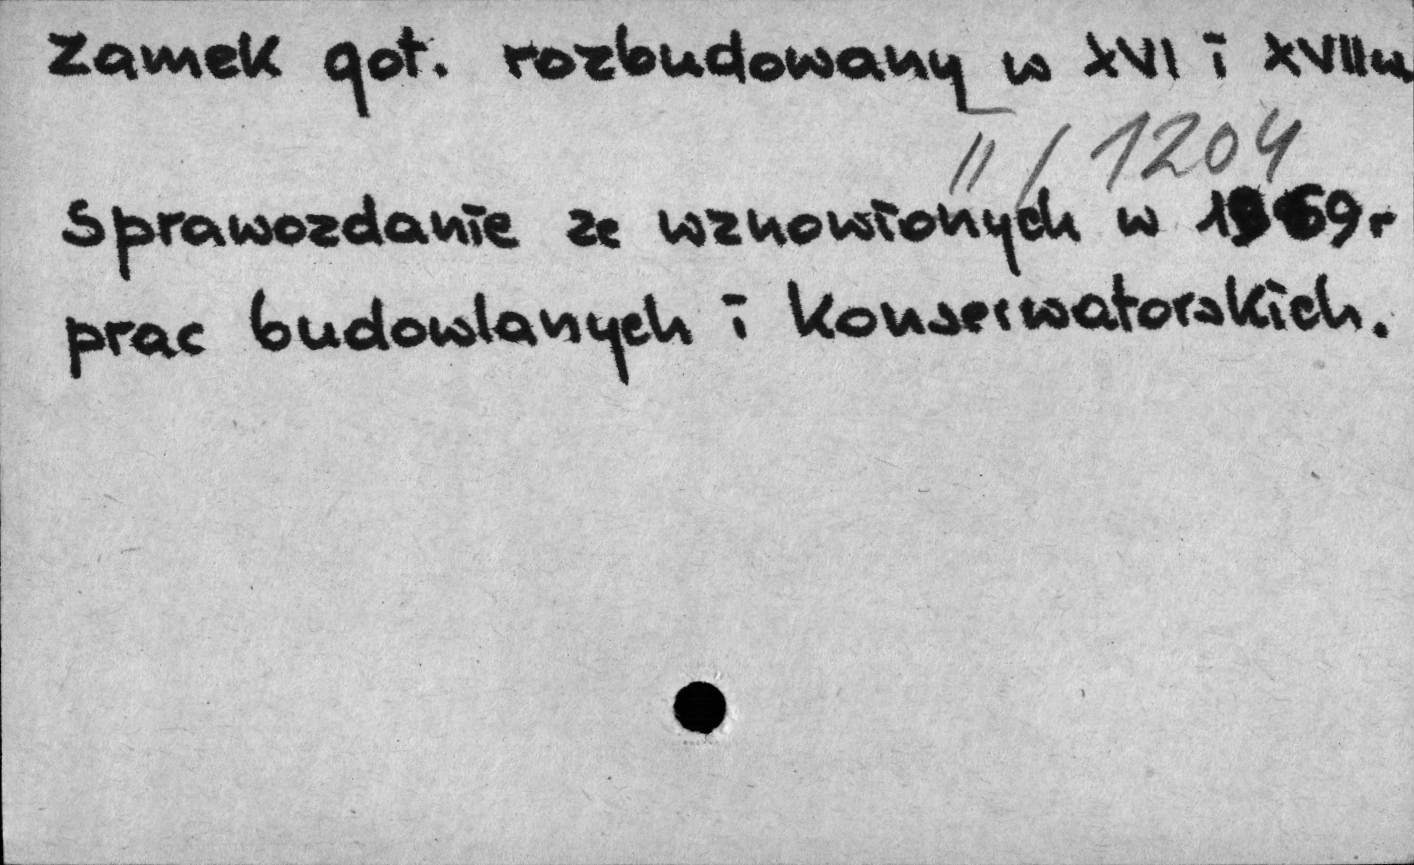 Zamek got. rozbudowany w XVI i XVIIw
II / 1204
Sprawozdanie ze wznowionych w 1969r
prac budowlanych i konserwatorskich.